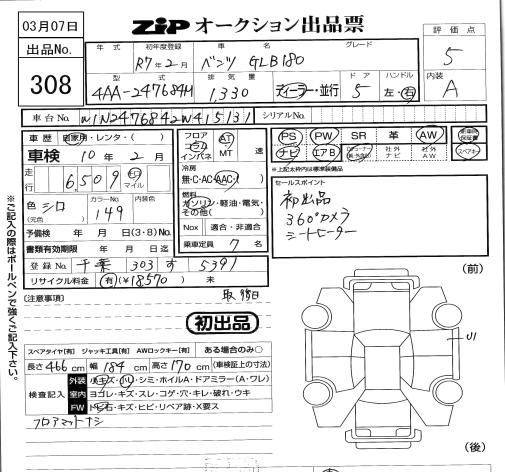 03月07日
ZIP オークション出品票
出品No. 308
年式 初年度登録 車名 グレード
R7年2月 ベンツ GLB180
型式 排気量 ドア ハンドル
4AA-247684M 1,330 ディーラー・並行 5 左・右
評価点 5
内装 A
車台No. W1N2476842W415131 シリアルNo.
車歴 自家用・レンタ・( )
車検 10年2月
走行 6,509 km マイル
色 シロ (元色) カラーNo. 149 内装色
予備検 年 月 日(3・8)
書類有効期限 年 月 日迄
登録No. 千葉 303 す 5391
リサイクル料金 有(¥18570) 未
フロア コラム インパネ AT MT 速
冷房 無・C・AC・AAC
燃料 ガソリン・軽油・電気・その他( )
Nox 適合・非適合
乗車定員 7名
PS PW SR 革 AW 新車時保証書
ナビ エアB 社外ナビ 社外AW スペアキー
*上記太枠内は標準装備品
セールスポイント
初出品
360°カメラ
シートヒーター
(注意事項)
初出品
スペアタイヤ[有] ジャッキ工具[有] AWロックキー[有] ある場合のみ○
長さ 466 cm 幅 184 cm 高さ 170 cm (車検証上の寸法)
検査記入
外装 小キズ・小U・シミ・ホイルA・ドアミラー(A・ワレ)
室内 ヨゴレ・キズ・スレ・コゲ・穴・キレ・破れ・ウキ
FW トビ石・キズ・ヒビ・リペア跡・X要ス
フロアマットナシ
(前)
U1
(後)
※ご記入の際はボールペンで強くご記入下さい。